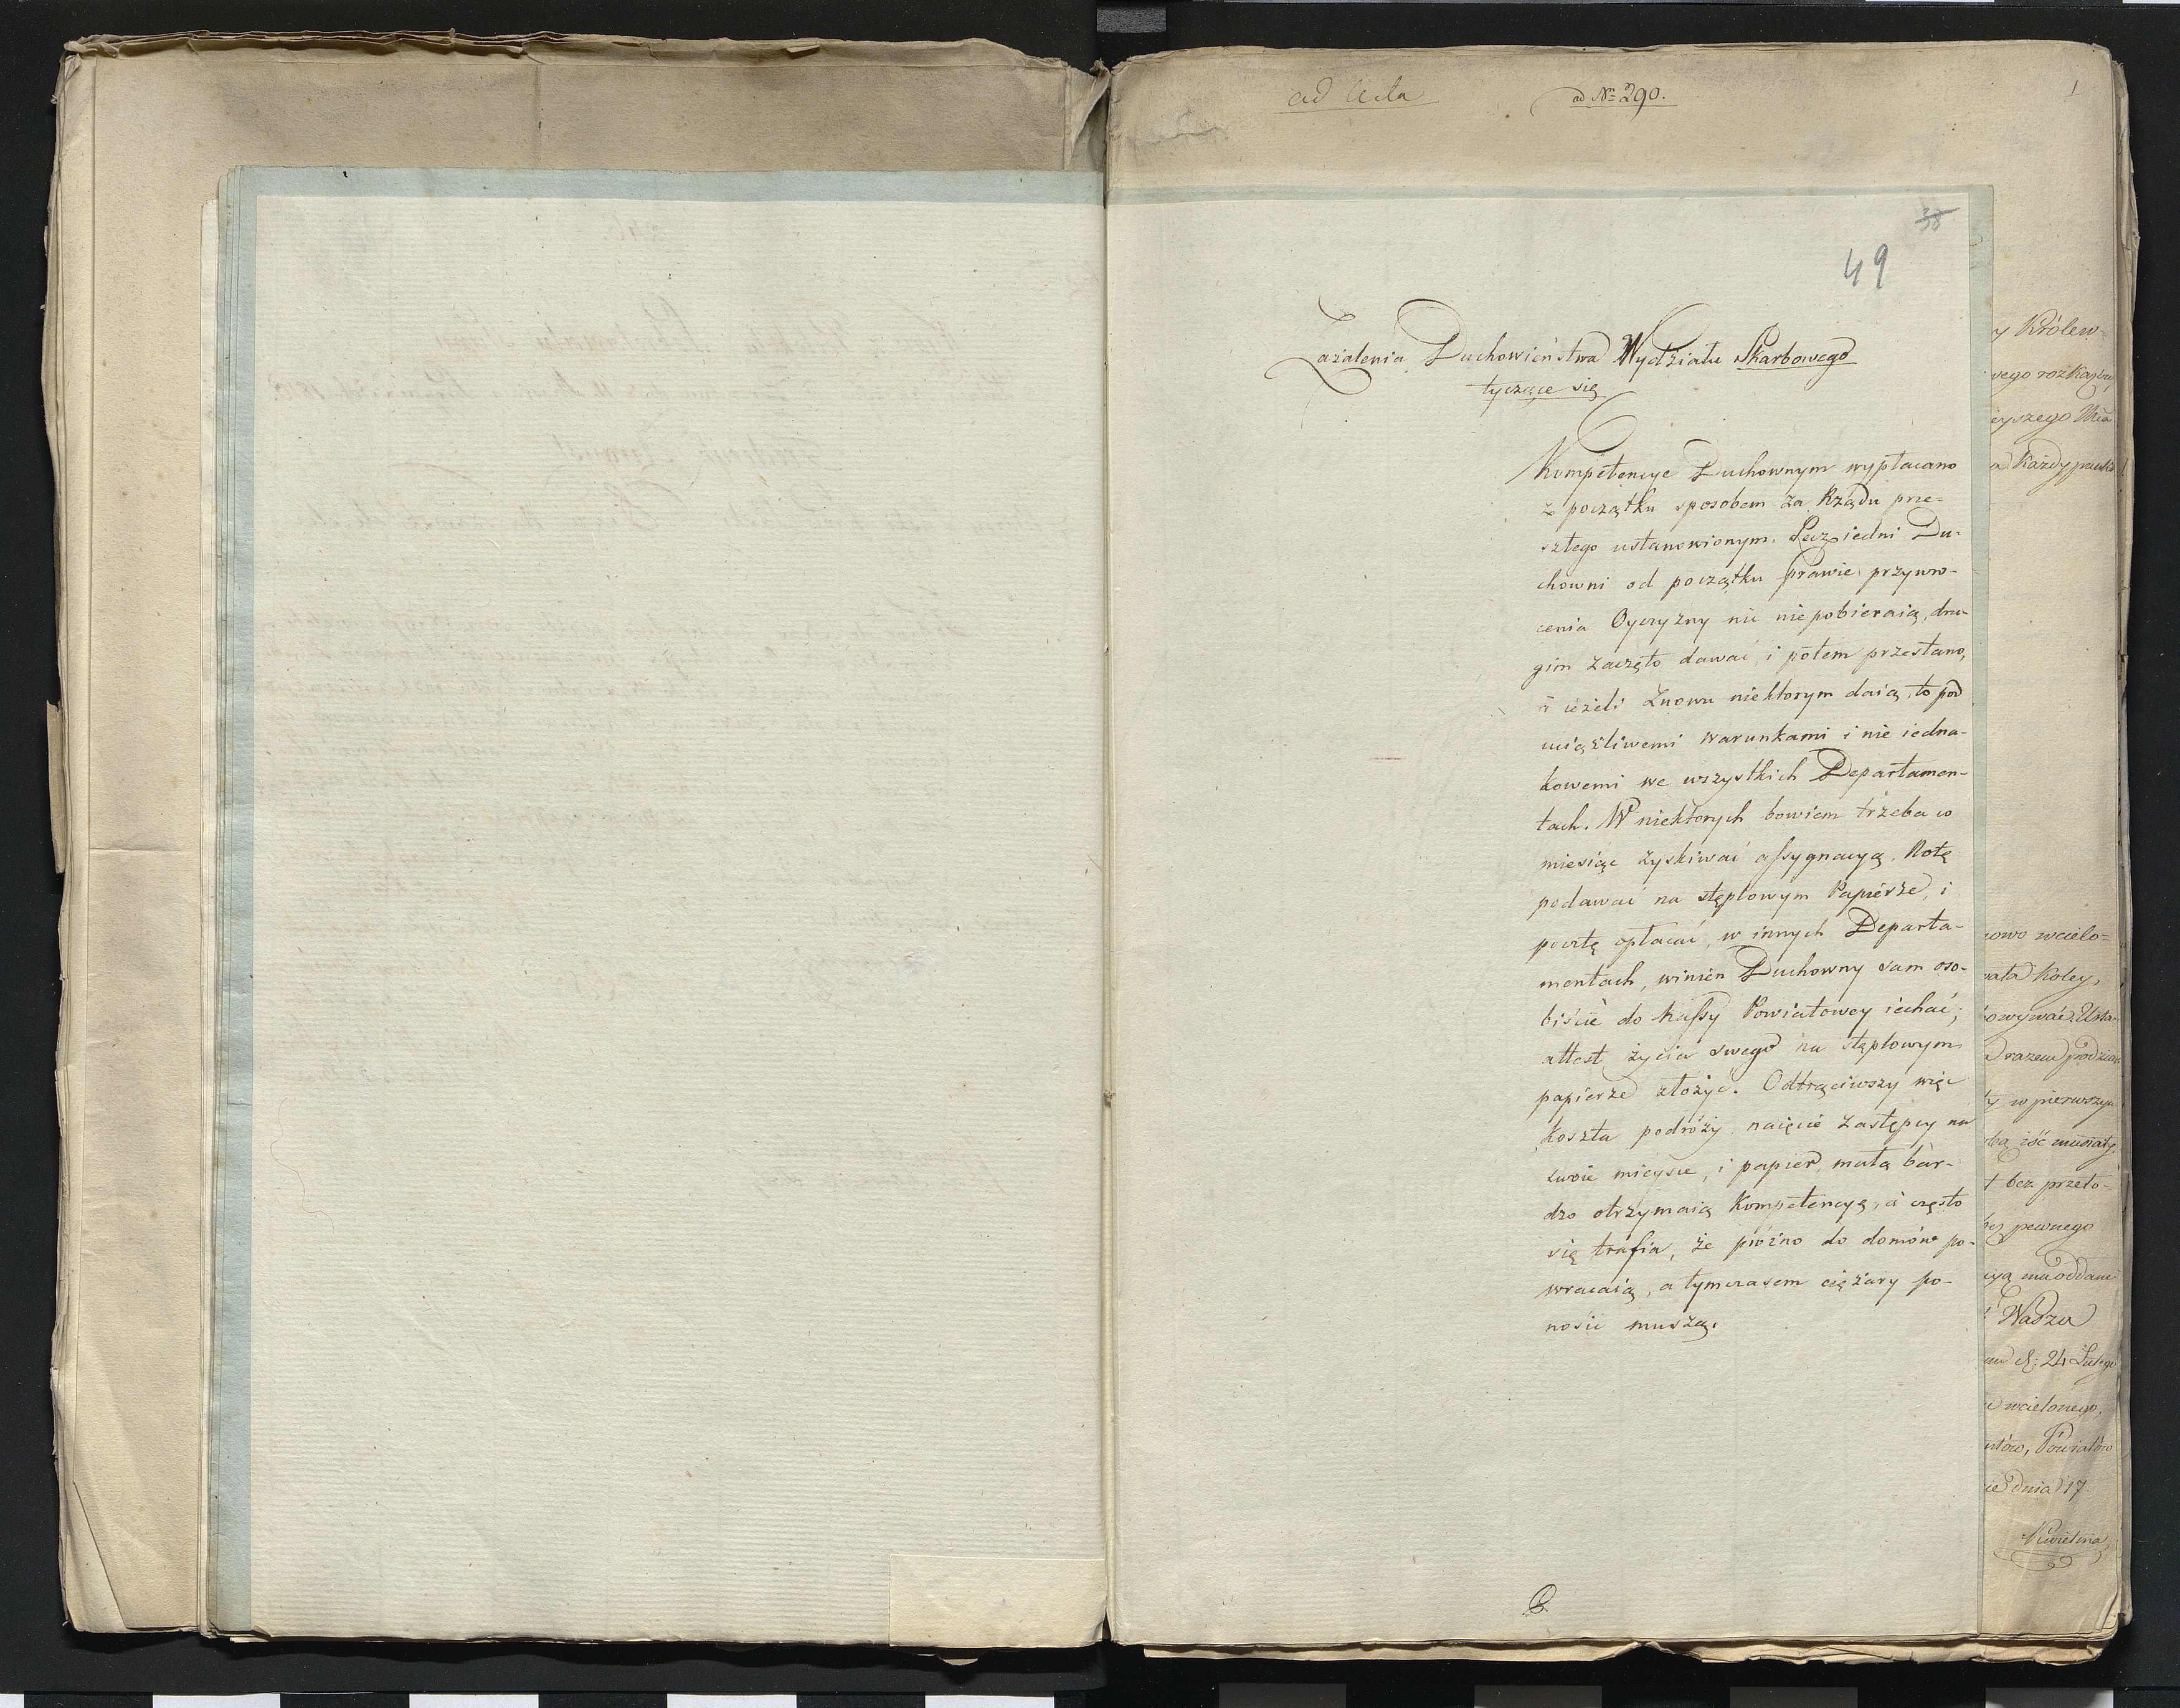 ad Acta
ad Nr 290.
1
38
49
Zażalenia Duchowieństwa Wydziału Skarbowego
tyczące się
Kompetencye Duchownym wypłacano
z początku sposobem za Rządu prze-
szłego ustanowionym. Lecz iedni Du-
chowni od początku prawie przywró-
cenia Oyczyzny nic niepobieraią, dru-
gim zaczęto dawać i potem przestano,
a ieżeli znowu niektorym daią, to pod
uciążliwemi warunkami i nie iedna-
kowemi we wszystkich Departamen-
tach. W niektorych bowiem trzeba co
miesiąc zyskiwać assygnacyą, Notę
podawać na stęplowym Papierze, i
pocztę opłacać, w innych Departa-
mentach, winien Duchowny sam oso-
biście do Kassy Powiatowey iechać,
attest życia swego na stęplowym
papierze złożyć. Odtrąciwszy więc
koszta podróży naięcie zastępcy na
swoie mieysce, i papier, małą bar-
dzo otrzymaią Kompetencyą, a często
się trafia, że późno do domów po-
wracaią, a tymczasem ciężary po-
nosić muszą.
y Królew-
wego rozkazu,
eyszego Mia
a każdy
nowo wcielo=
nata Koley,
razem
ty w pierwszym
bą iść musiały
t bez przeło-
bez pewnego
cyą ma oddane
Wadza
d: 24 Lutego
wcielonego,
ntów, Powiatów
ie dnia 17
Kwietnia